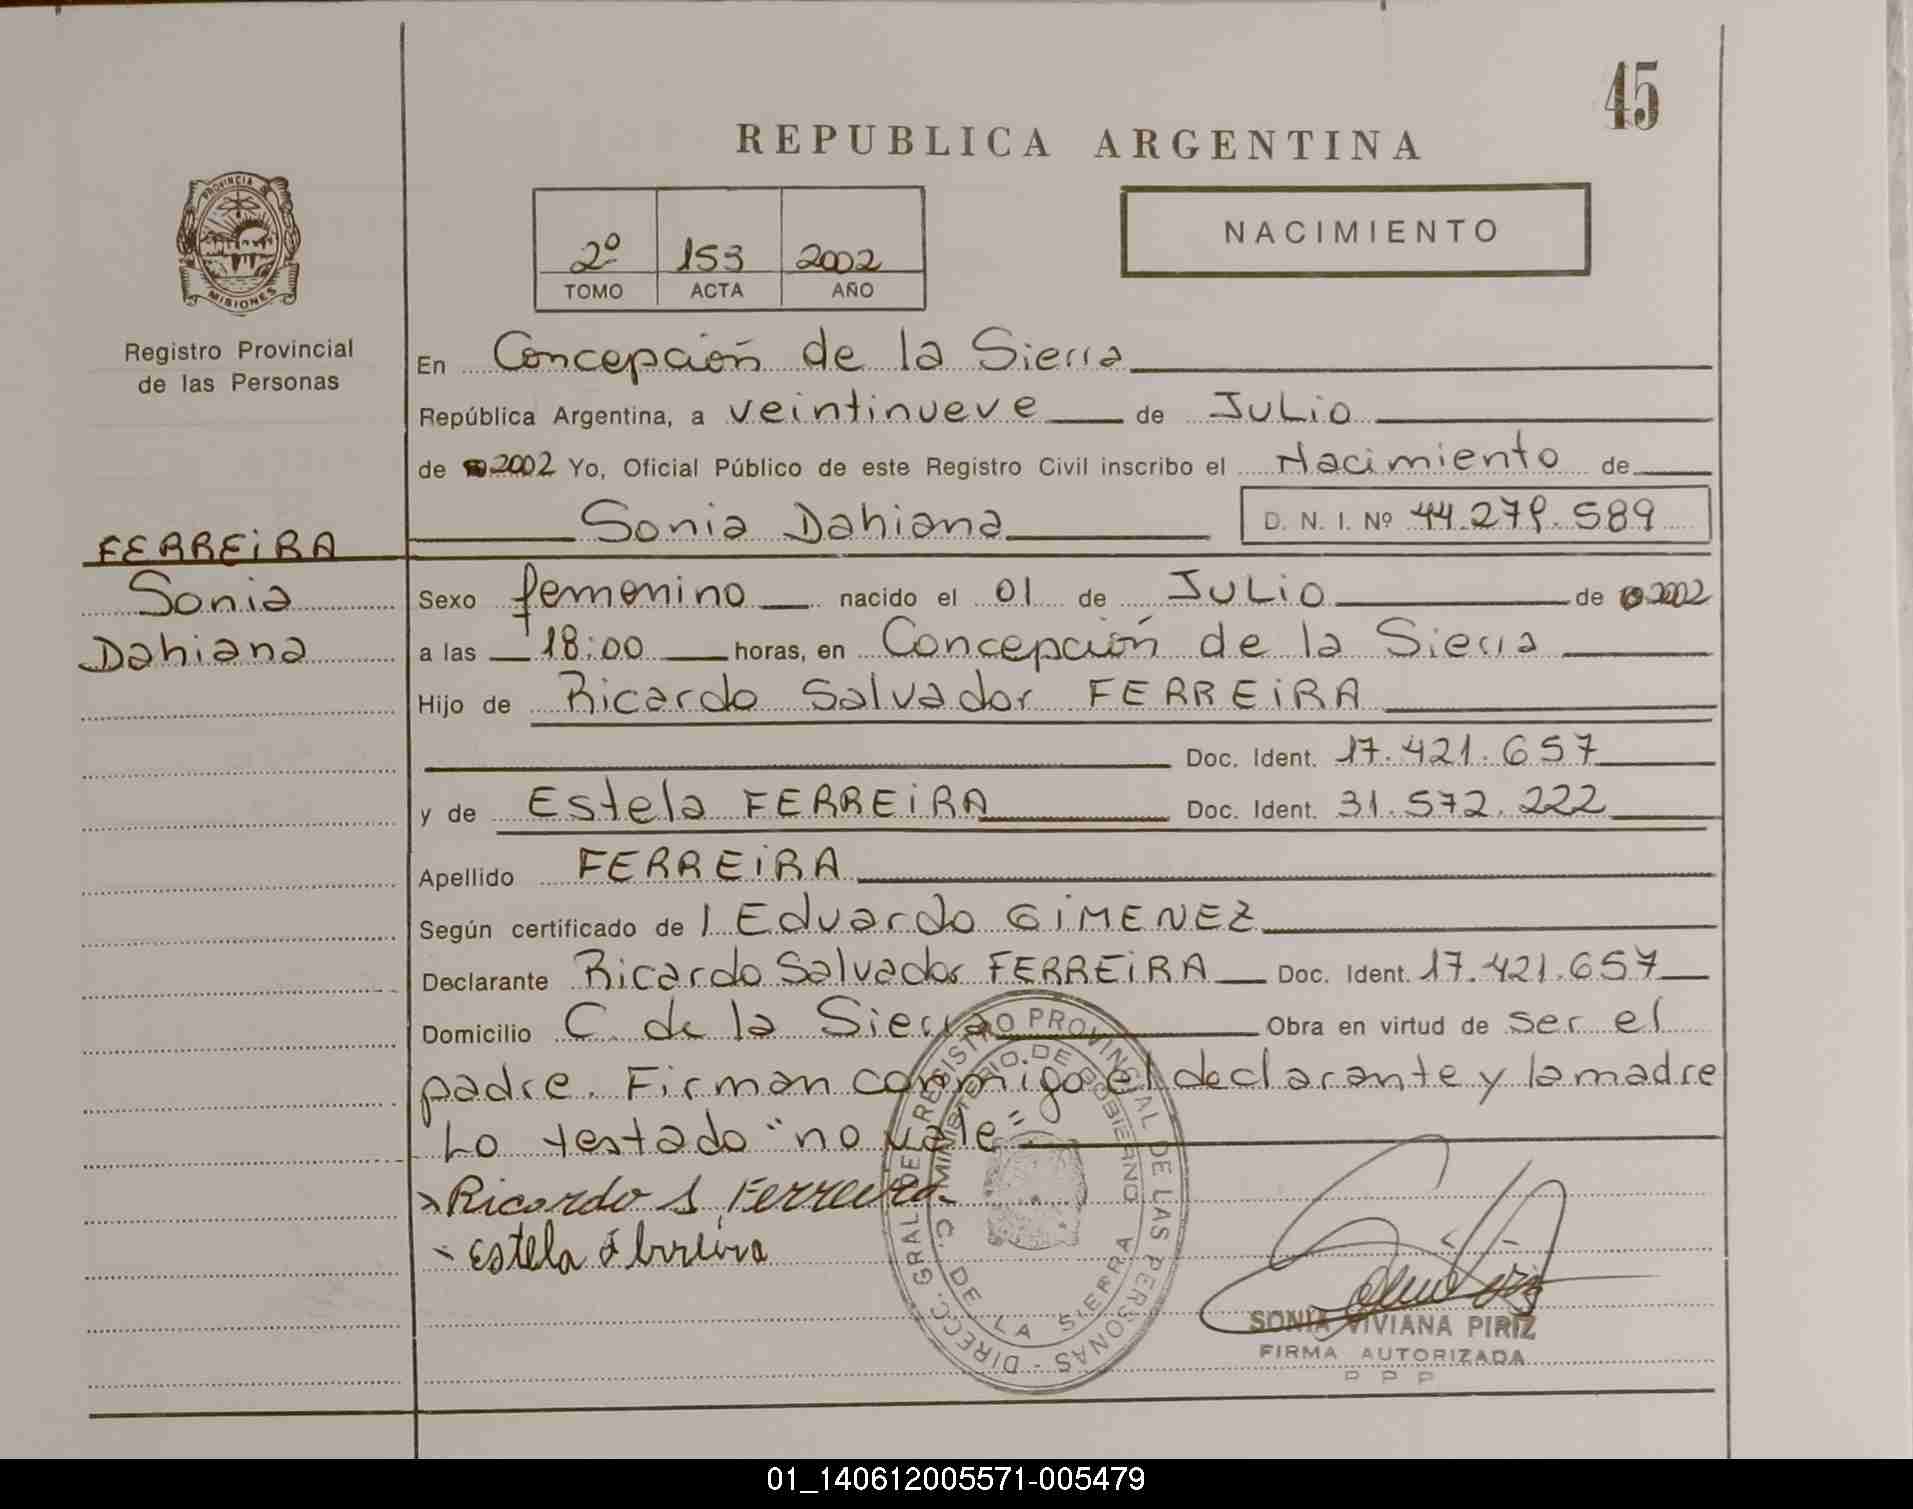 45
REPUBLICA ARGENTINA
PROVINCIA DE
MISIONES
Registro Provincial
de las Personas
2º 153 2002
TOMO ACTA AÑO
NACIMIENTO
En Concepción de la Sierra
República Argentina, a veintinueve de Julio
de 2002 Yo, Oficial Público de este Registro Civil inscribo el Nacimiento de
Sonia Dahiana D. N. I. Nº 44.279.589
FERREIRA
Sonia
Dahiana
Sexo femenino nacido el 01 de Julio de 2002
a las 18:00 horas, en Concepción de la Sierra
Hijo de Ricardo Salvador FERREIRA
Doc. Ident. 17.421.657
y de Estela FERREIRA Doc. Ident. 31.572.222
Apellido FERREIRA
Según certificado de l Eduardo GIMENEZ
Declarante Ricardo Salvador FERREIRA Doc. Ident. 17.421.657
Domicilio C. de la Sierra Obra en virtud de ser el
padre. Firman conmigo el declarante y la madre
Lo testado "no vale"
Ricardo S. Ferreira
Estela Ferreira
DIRECC. GRAL DE REGISTRO PROVINCIAL DE LAS PERSONAS -
MINISTERIO DE GOBIERNO
C. DE LA SIERRA
SONIA VIVIANA PIRIZ
FIRMA AUTORIZADA
P P P
01_140612005571-005479